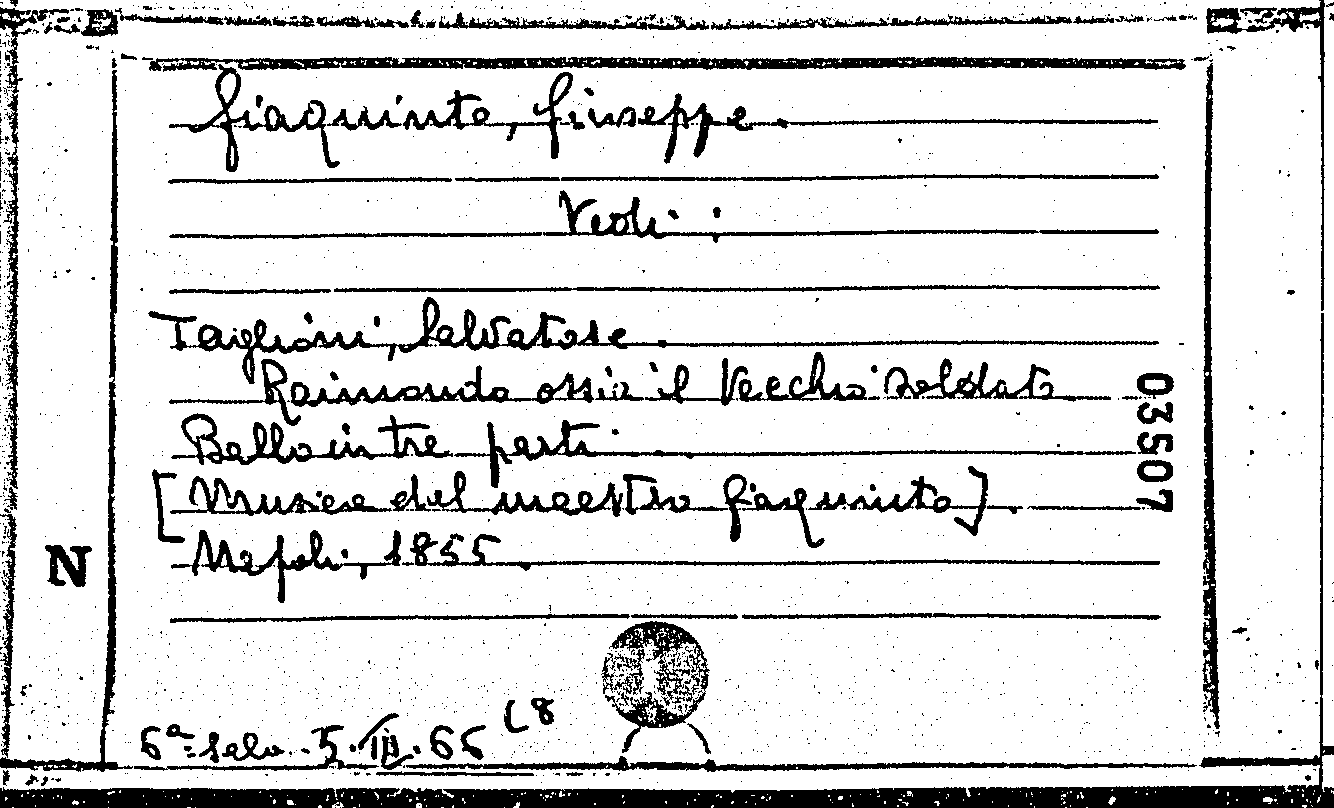 Giaquinto, Giuseppe.
Vedi:
Taglioni, Salvatore.
Raimondo ossia il Vecchio soldato
Ballo in tre parti.
[Musica del maestro Giaquinto].
Napoli, 1855.
03507
N
6ª Sala. 5. III. 65 (8